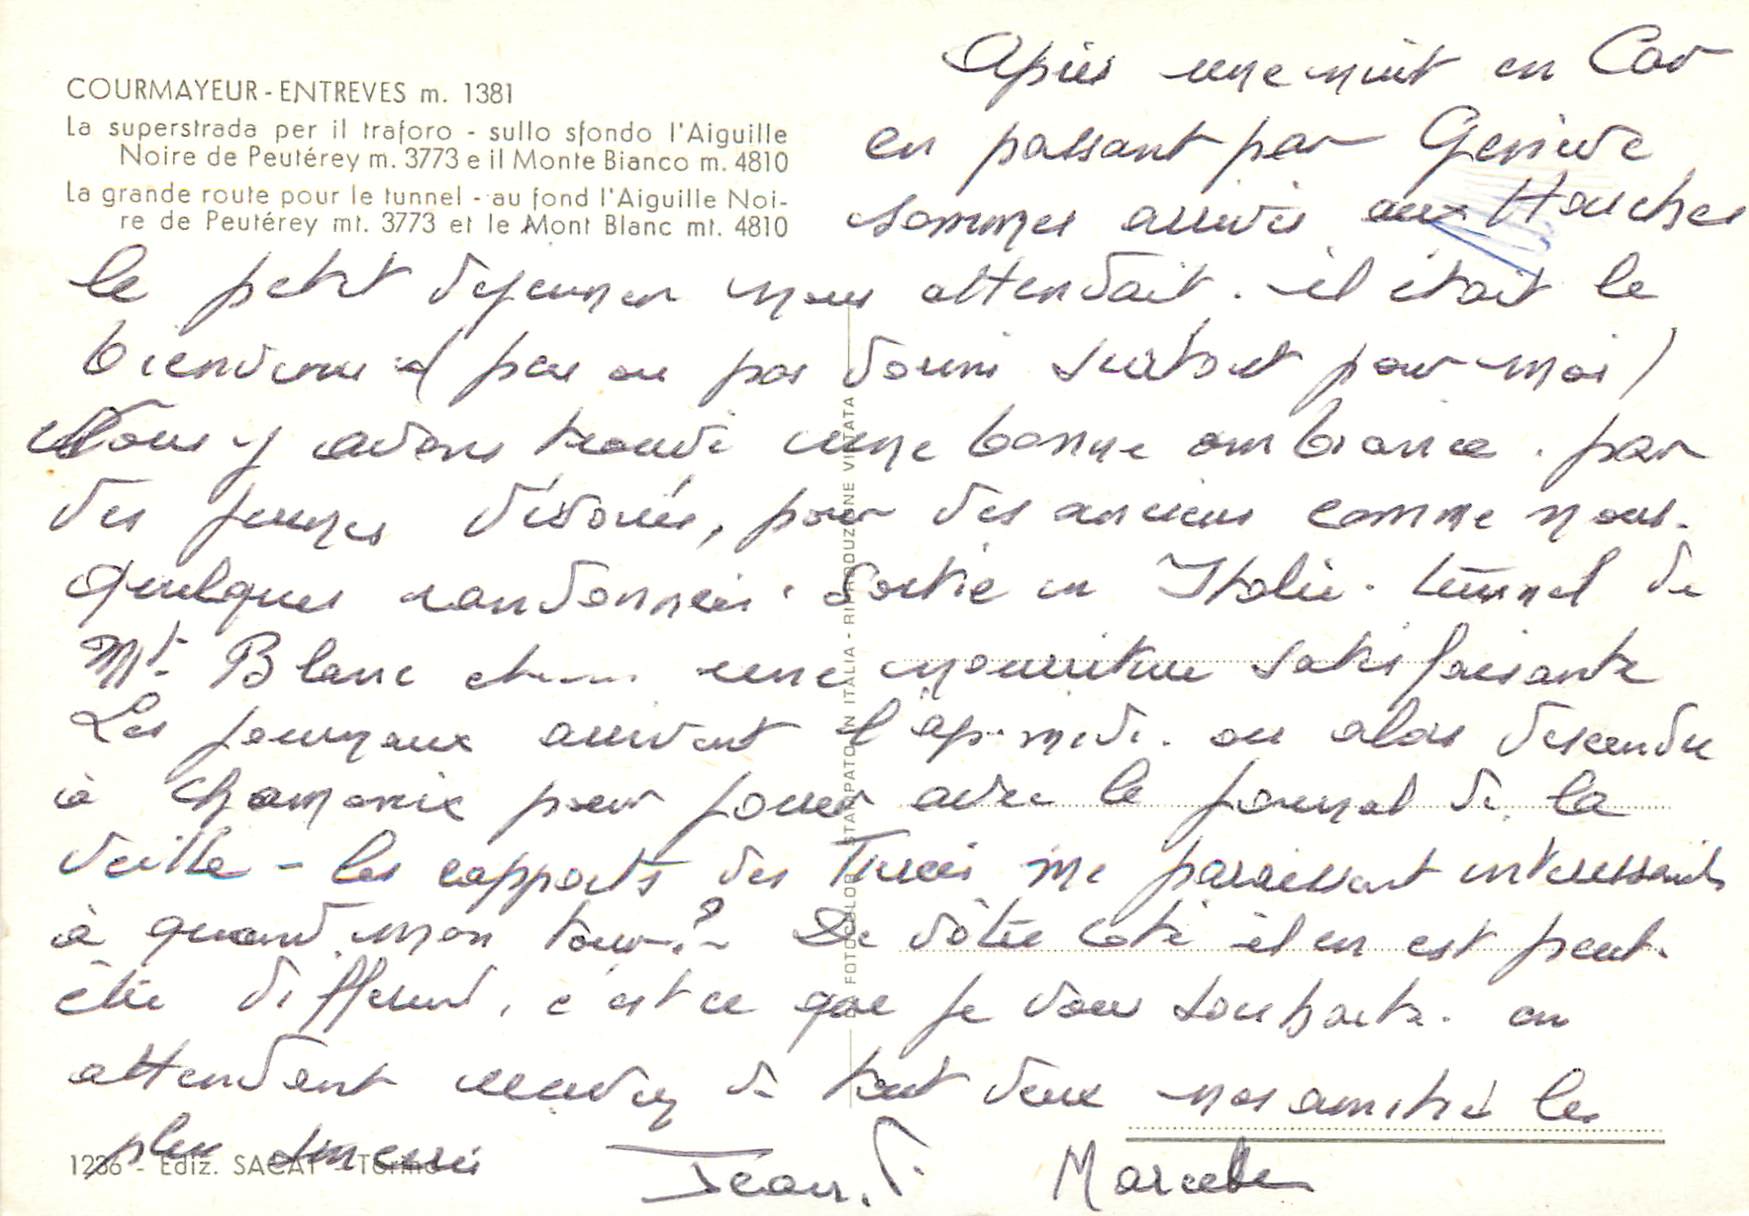 COURMAYEUR - ENTREVES m. 1381
La superstrada per il traforo - sullo sfondo l'Aiguille
Noire de Peutérey m. 3773 e il Monte Bianco m. 4810
La grande route pour le tunnel - au fond l'Aiguille Noi-
re de Peutérey mt. 3773 et le Mont Blanc mt. 4810
Après une nuit en Car
en passant par Genève
sommes arrivés aux Houches
le petit dejeuner nous attendait. il était le
bienvenu (peu ou pas dormi surtout pour moi)
Nous y avons trouvé une bonne ambiance. par
des jeunes dévoués, pour des anciens comme nous.
Quelques randonnées. Sortie en Italie. tunnel du
Mt. Blanc une nourriture satisfaisante
Les journaux arrivent l'ap. midi. ou alors descendre
à Chamonix pour jouer avec le journal de la
veille - les rapports des Tiercés me paraissent interessants
à quand mon tour? De vôtre coté il en est peut.
être different, c'est ce que je vous souhaite. en
attendant recevez de tout deux nos amitiés les
plus sinceres Jean. Marcelle
1236 - Ediz. SACAT - Torino
FOTOCOLOR STAMPATO IN ITALIA - RIPRODUZIONE VIETATA